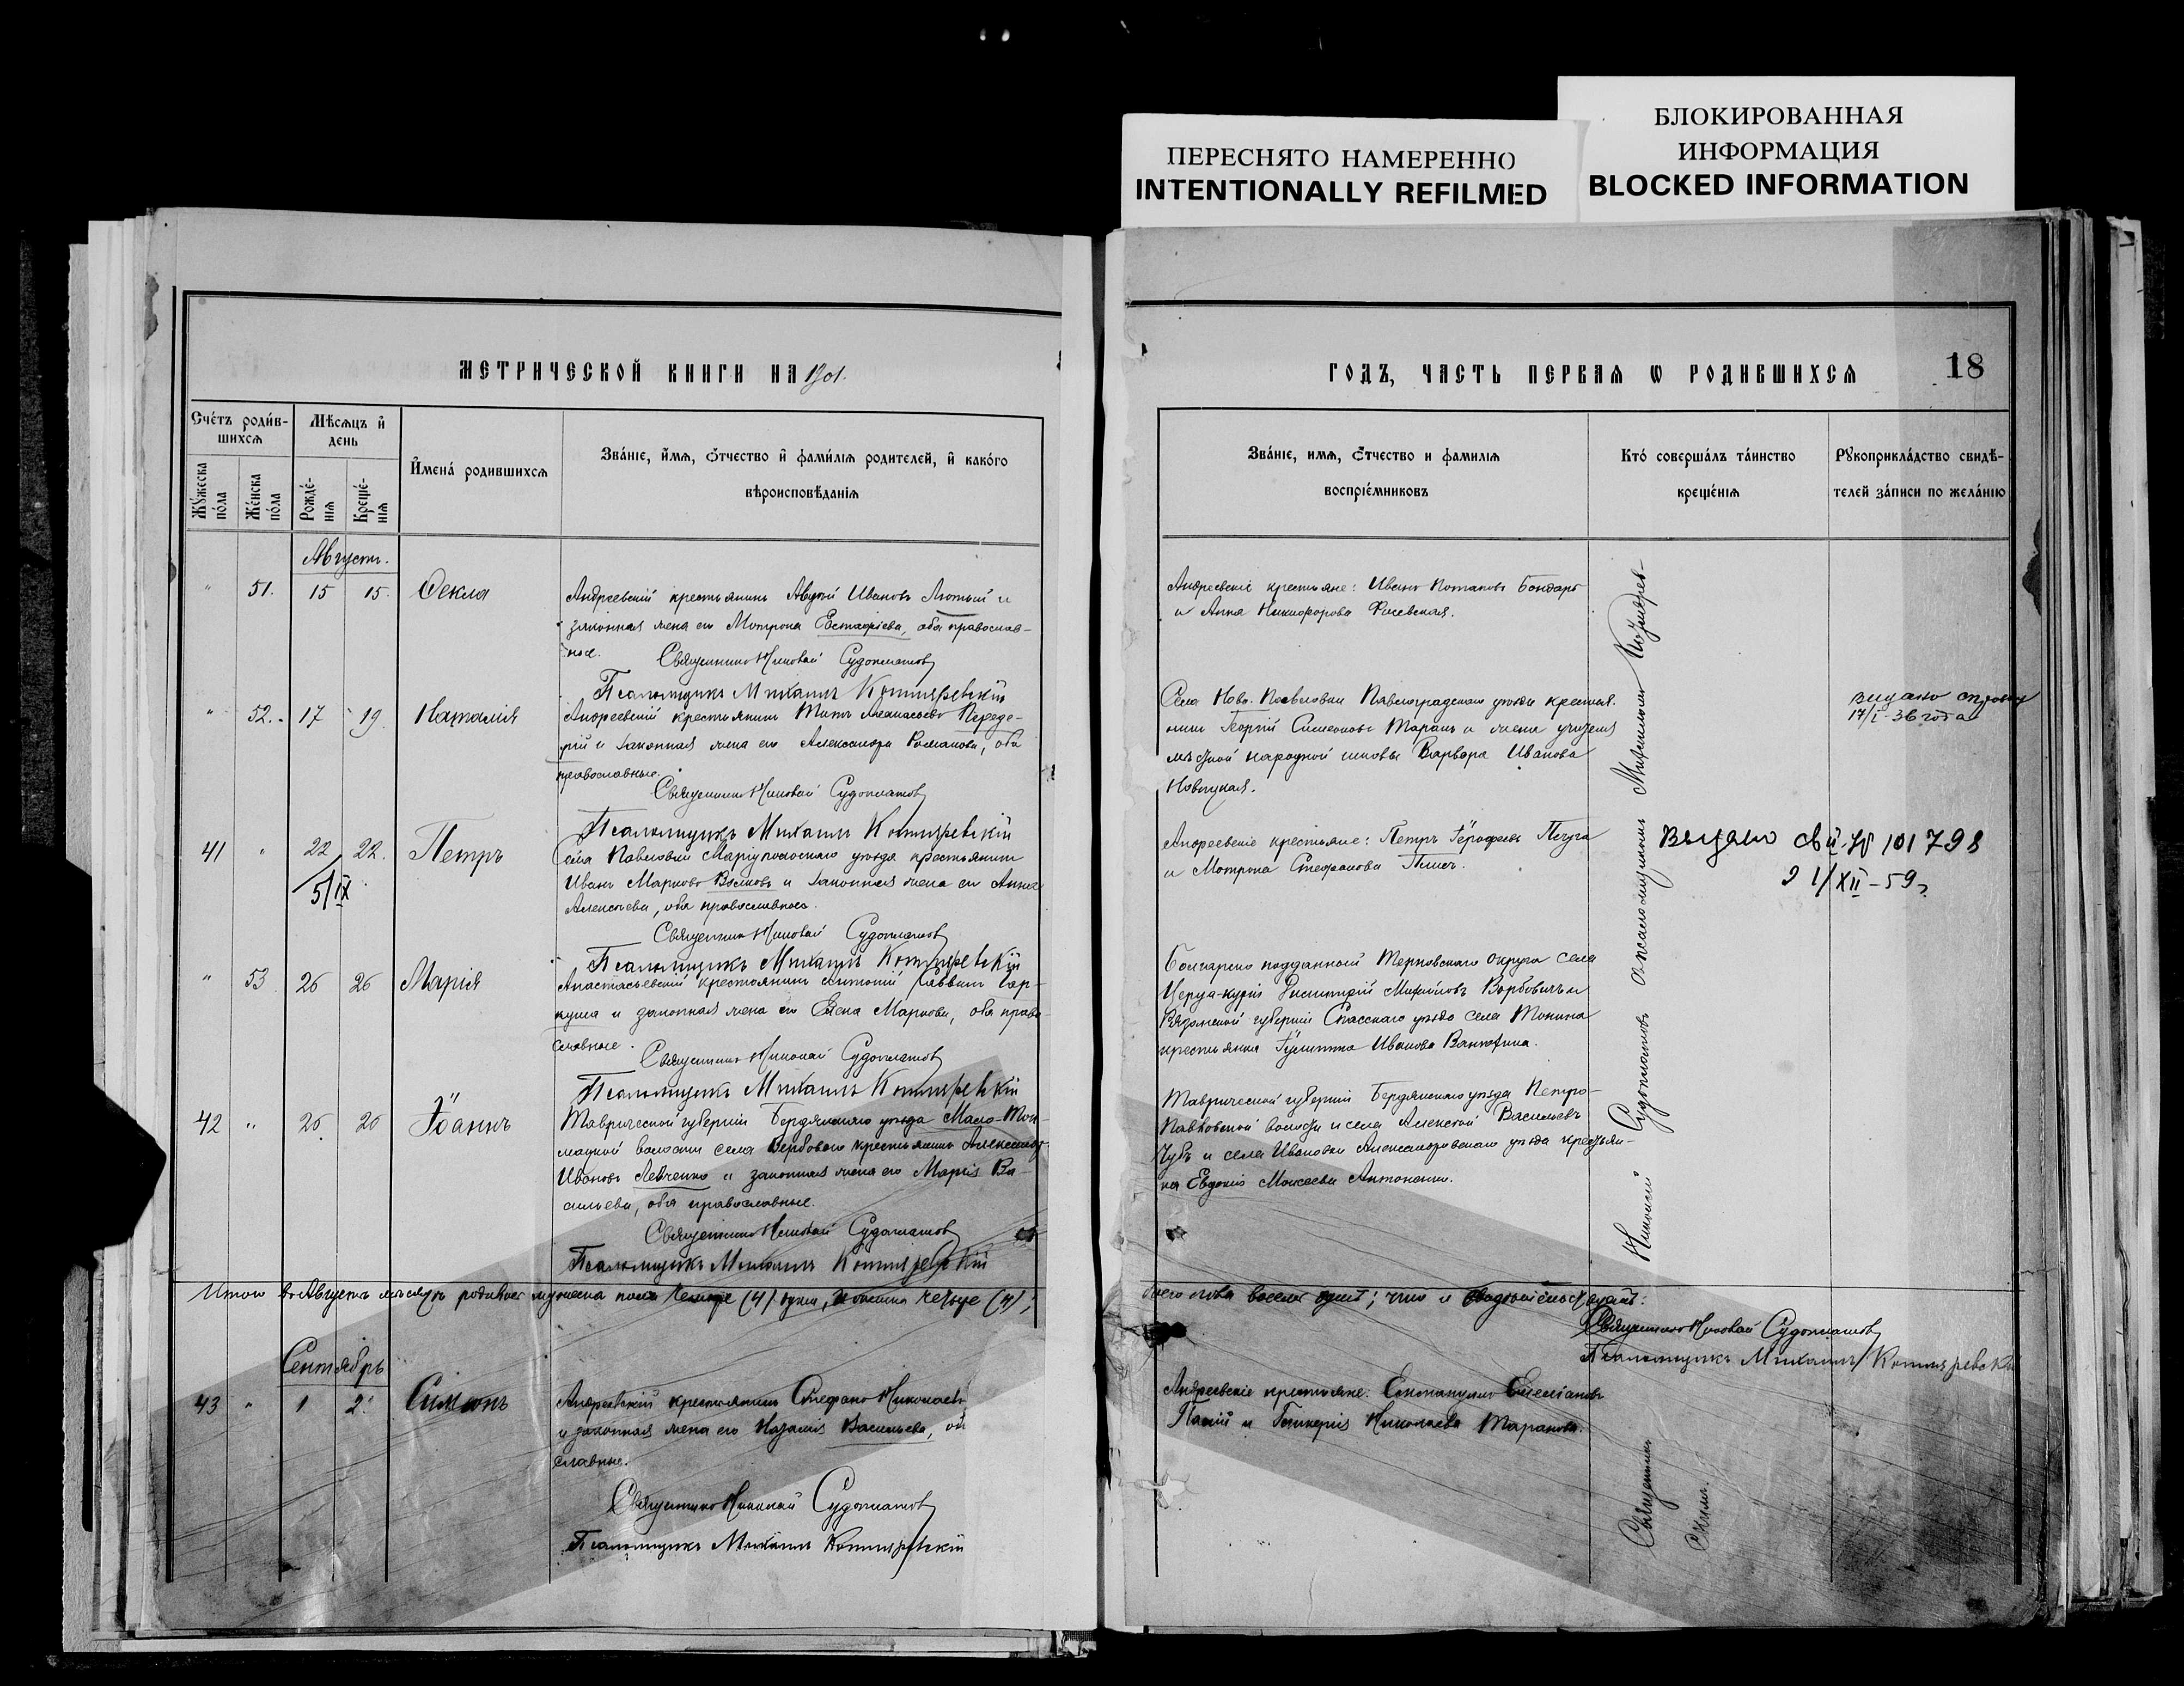 БЛОКИРОВАННАЯ
ИНФОРМАЦИЯ
BLOCKED INFORMATION
ПЕРЕСНЯТО НАМЕРЕННО
INTENTIONALLY REFILMED
МЕТРИЧЕСКОЙ КНИГИ НА 1901.
Счетъ родив-
шихся
Мѣсяцъ и
день
Мужеска
пола
Женска
пола
Рожде-
нія
Креще-
нія
Имена родившихся
Званіе, имя, отчество и фамилія родителей, и какого
вѣроисповѣданія
Августъ.
" 51. 15 15. Ѳекла
Андреевскій крестьянинъ Ивановъ Лютый и
законная жена его Матрона Евстафіева, оба православ-
ные.
Священникъ Николай Судоплатовъ
Псаломщикъ Михаилъ Котляревскій
" 52. 17 19. Наталія
Андреевскій крестьянинъ Титъ Переде-
рій и законная жена его Александра Романова, оба
православные.
Священникъ Николай Судоплатовъ
Псаломщикъ Михаилъ Котляревскій
41 " 22 22. Петръ
5/IX
Села Павловки Маріупольскаго уѣзда крестьянинъ
Иванъ Марковъ Волковъ и законная жена его Анна
Алексѣева, оба православные.
Священникъ Николай Судоплатовъ
Псаломщикъ Михаилъ Котляревскій
" 53 26 26 Марія
Анастасьевскій крестьянинъ Антоній Саввинъ Гар-
куша и законная жена его Елена Маркова, оба право-
славные.
Священникъ Николай Судоплатовъ
Псаломщикъ Михаилъ Котляревскій
42 " 26 26 Іоаннъ
Таврической губерніи Бердянскаго уѣзда Мало-Ток-
мацкой волости села Вербоваго крестьянинъ Александръ
Ивановъ Левченко и законная жена его Марія Ва-
сильева, оба православные.
Священникъ Николай Судоплатовъ
Псаломщикъ Михаилъ Котляревскій
Итого въ Августѣ мѣсяцѣ родилось мужеска пола (4) душ, женска (4);
Сентябрь
43 " 1 2. Симонъ
Андреевскій крестьянинъ Стефанъ Николаевъ
и законная жена его Васильева,
славные.
Священникъ Николай Судоплатовъ
Псаломщикъ Михаилъ Котляревскій
ГОДЪ, ЧАСТЬ ПЕРВАЯ Ѡ РОДИВШИХСЯ
18
Званіе, имя, отчество и фамилія
воспріемниковъ
Кто совершалъ таинство
крещенія
Рукоприкладство свидѣ-
телей записи по желанію
Андреевскіе крестьяне: Иванъ Потаповъ Бондарь
и Анна Никифорова
Села Ново-Павловки Павлоградскаго уѣзда крестья-
нинъ Георгій Симеоновъ Таранъ и жена учителя
мѣстной народной школы Варвара Иванова
Новицкая.
видано справку
17/I-36 года
Андреевскіе крестьяне: Петръ
и Матрона Стефанова
Выдано св. II-У № 101798
21/XII-59г
Болгарско подданный Терновскаго округа села
Димитрій Михайловъ и
Рязанской губерніи Спасскаго уѣзда села
крестьянка Иванова
Таврической губерніи Бердянскаго уѣзда Петро-
Павловской волости и села Алексѣй Васильевъ
Чубъ и села Ивановки Александровскаго уѣзда крестьян-
ка Евдокія Моисеева Антоненко.
обоего пола восемь душъ; что и свидѣтельствуютъ:
Священникъ Николай Судоплатовъ
Псаломщикъ Михаилъ Котляревскій
Андреевскіе крестьяне:
и Гликерія Николаева Таранова.
Священникъ Николай Судоплатовъ съ псаломщикомъ Михаиломъ Котлярев-
скимъ.